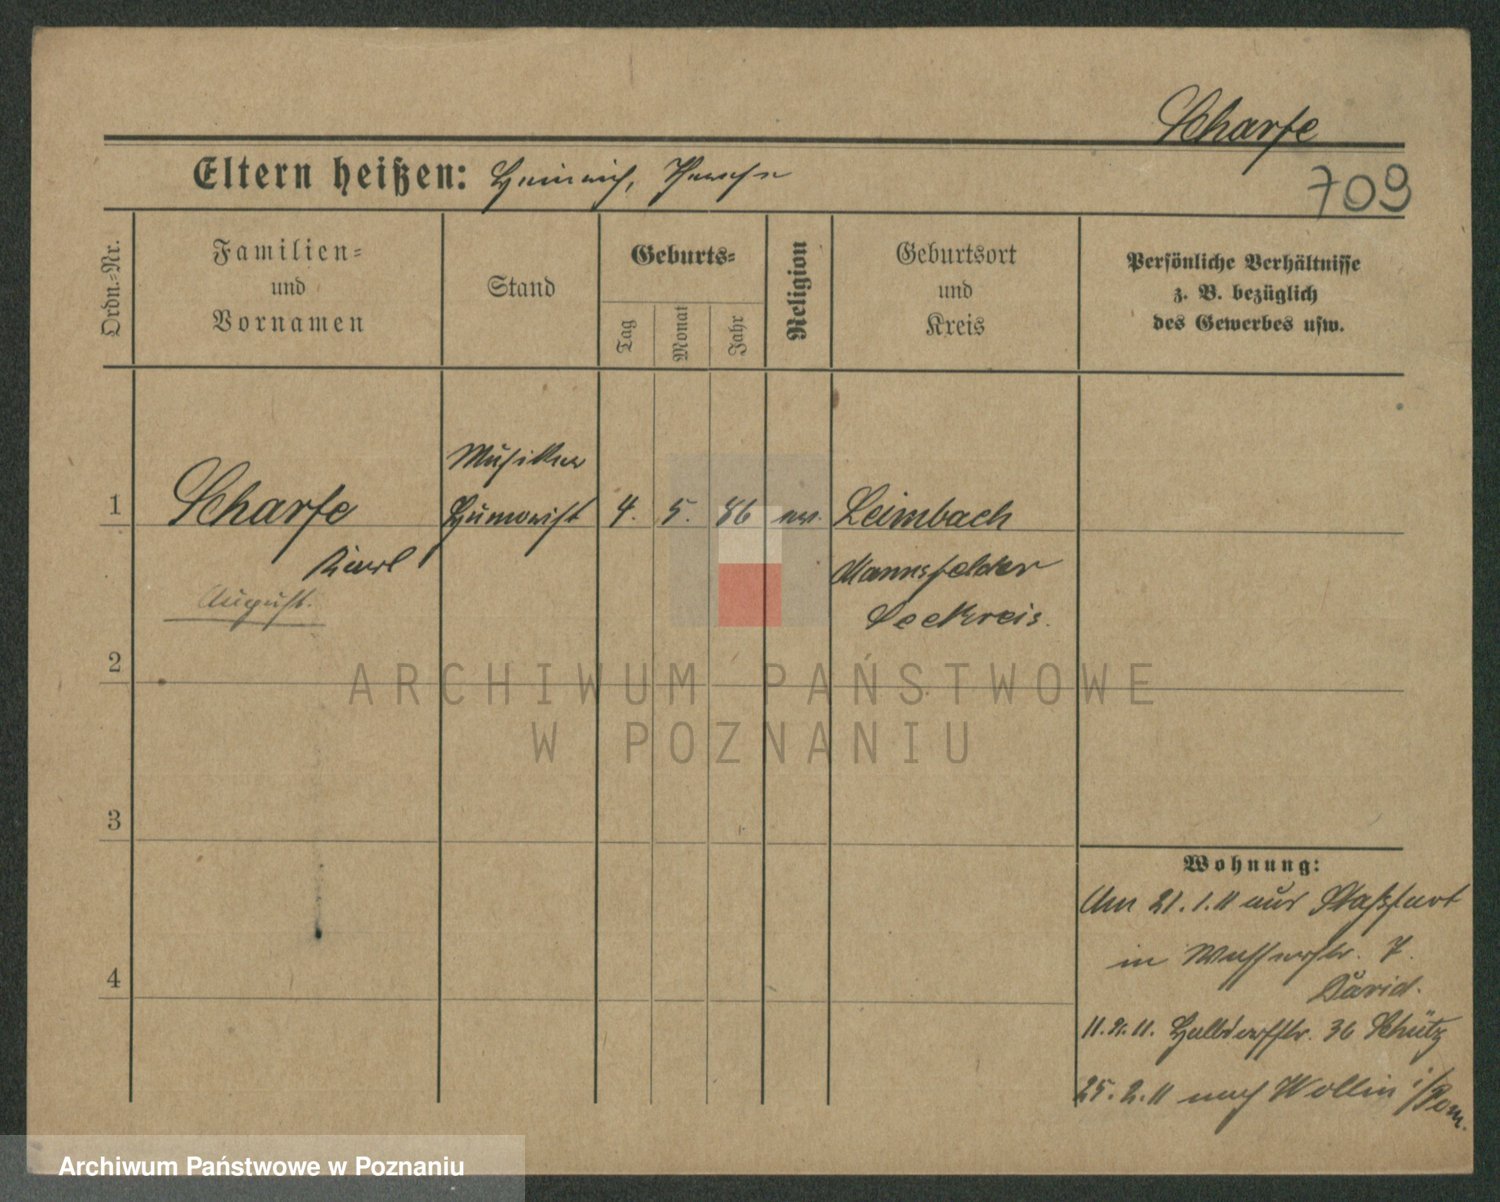 Scharfe
Eltern heißen: Heinrich,
709
Ordn.-Nr.
Familien-
und
Vornamen
Stand
Geburts-
Tag
Monat
Jahr
Religion
Geburtsort
und
Kreis
Persönliche Verhältnisse
z. B. bezüglich
des Gewerbes usw.
Musiker
1 Scharfe Humorist 4. 5. 86 ev. Leimbach
Karl Mannsfelder
August. Seekreis.
2
3
4
Wohnung:
Am 21.1.11 aus Staßfurt
in Wasserstr. 7.
David.
11.2.11. Halbdorfstr. 36 Schütz
25.2.11 nach Wollin i/Pom.
ARCHIWUM PAŃSTWOWE
W POZNANIU
Archiwum Państwowe w Poznaniu